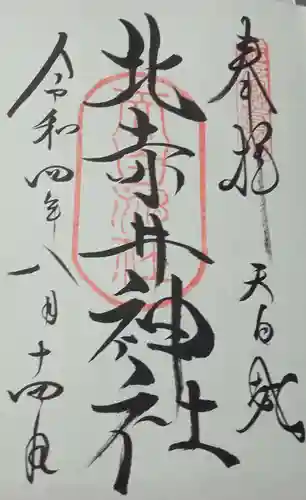 奉拝
天白
北赤井神社
令和四年八月十四日